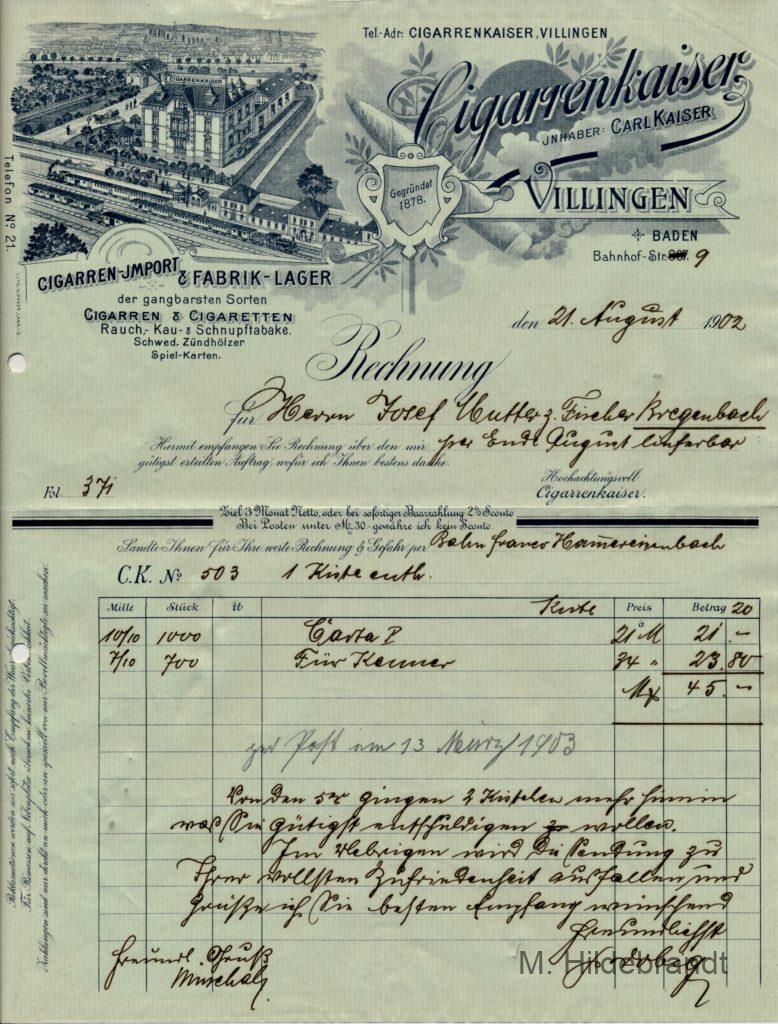 Tel.-Adr: CIGARRENKAISER, VILLINGEN
CIGARRENKAISER
Cigarrenkaiser
JNHABER: CARL KAISER
Gegründet
1878.
VILLINGEN
BADEN
Bahnhof-Str. 9
Telefon No. 21.
CIGARREN-JMPORT & FABRIK-LAGER
der gangbarsten Sorten
CIGARREN & CIGARETTEN
Rauch,- Kau- & Schnupftabake.
Schwed. Zündhölzer
Spiel-Karten.
den 21. August 1902
Rechnung
für Herrn Josef Mutter z. Fischer Bregenbach
per Ende August lieferbar
Hiermit empfangen Sie Rechnung über den mir
gütigst erteilten Auftrag wofür ich Ihnen bestens danke.
Hochachtungsvoll
Cigarrenkaiser.
Fol. 371
Ziel 3 Monat Netto, oder bei sofortiger Baarzahlung 2% Sconto
Bei Posten unter M. 30.- gewähre ich kein Sconto.
Sandte Ihnen für Ihre werte Rechnung & Gefahr per Bahn franco Hammereisenbach
C.K. No 503 1 Kiste enth.
Mille Stück ℔ Kiste Preis Betrag 20
10/10 1000 Carta P à 21 M 21.-
7/10 700 Für Kenner 34 " 23.80
M 45.-
zur Post am 13 März 1903
Von den 5er gingen 2 Kistchen mehr hinein
was Sie gütigst entschuldigen wollen.
Im Uebrigen wird die Sendung zu
Ihrer vollsten Zufriedenheit ausfallen und
Grüße ich Sie besten Empfang wünschend
Freundlichst
Freundl. Gruß
M. Hildebrandt
Reklamationen werden nur sofort nach Empfang der Waare berücksichtigt.
Für Rimessen auf Nebenplätze übernehme keinerlei Verbindlichkeit.
Zahlungen sind nur direkt an mich oder an speziell von mir Bevollmächtigte zu machen.